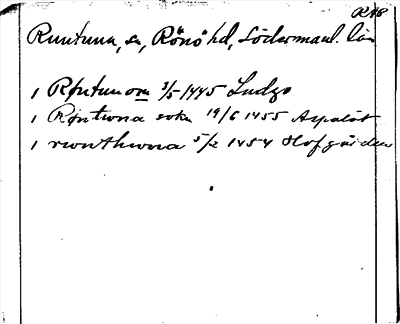 R48
Runtuna, sn, Rönö hd, Södermanl. län
1 Røntunom 3/5 1445 Ludgo
1 Røntwna sokn 19/6 1455 Aspalöt
1 rwnthwna 5/2 1454 Hofgården